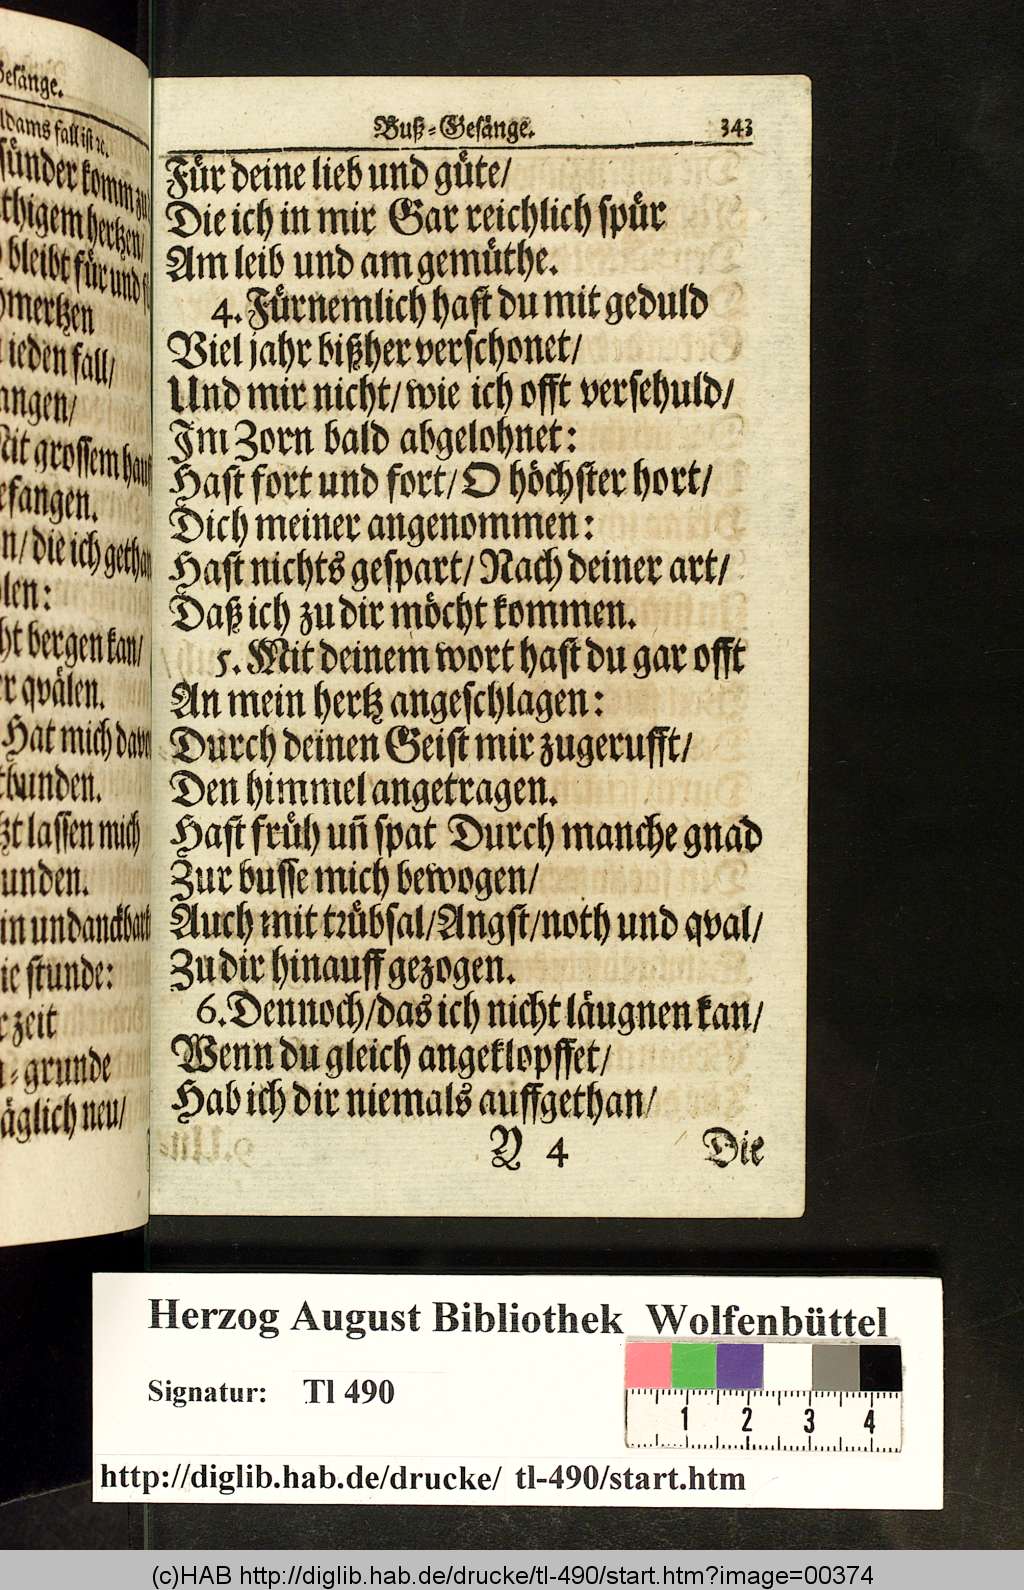 Gesänge.
Adams fall ist ꝛc.
sünder komm zu
thigem hertzen/
bleibt für und
mertzen
ieden fall/
angen/
Mit grossem hauf
efangen.
n/ die ich gethan
len:
ht bergen kan/
r qvälen.
Hat mich davo
bunden.
tzt lassen mich
unden.
in undanckbark
ie stunde:
r zeit
n-grunde
äglich neu/
Buß-Gesänge. 343
Für deine lieb und güte/
Die ich in mir Gar reichlich spür
Am leib und am gemüthe.
4. Fürnemlich hast du mit geduld
Viel jahr bißher verschonet/
Und mir nicht/ wie ich offt versehuld/
Im Zorn bald abgelohnet:
Hast fort und fort/ O höchster hort/
Dich meiner angenommen:
Hast nichts gespart/ Nach deiner art/
Daß ich zu dir möcht kommen.
5. Mit deinem wort hast du gar offt
An mein hertz angeschlagen:
Durch deinen Geist mir zugerufft/
Den himmel angetragen.
Hast früh uñ spat Durch manche gnad
Zur busse mich bewogen/
Auch mit trübsal/ Angst/ noth und qval/
Zu dir hinauff gezogen.
6. Dennoch/ das ich nicht läugnen kan/
Wenn du gleich angeklopffet/
Hab ich dir niemals auffgethan/
Y 4 Die
Herzog August Bibliothek Wolfenbüttel
Signatur: Tl 490
1 2 3 4
http://diglib.hab.de/drucke/ tl-490/start.htm
(c)HAB http://diglib.hab.de/drucke/tl-490/start.htm?image=00374